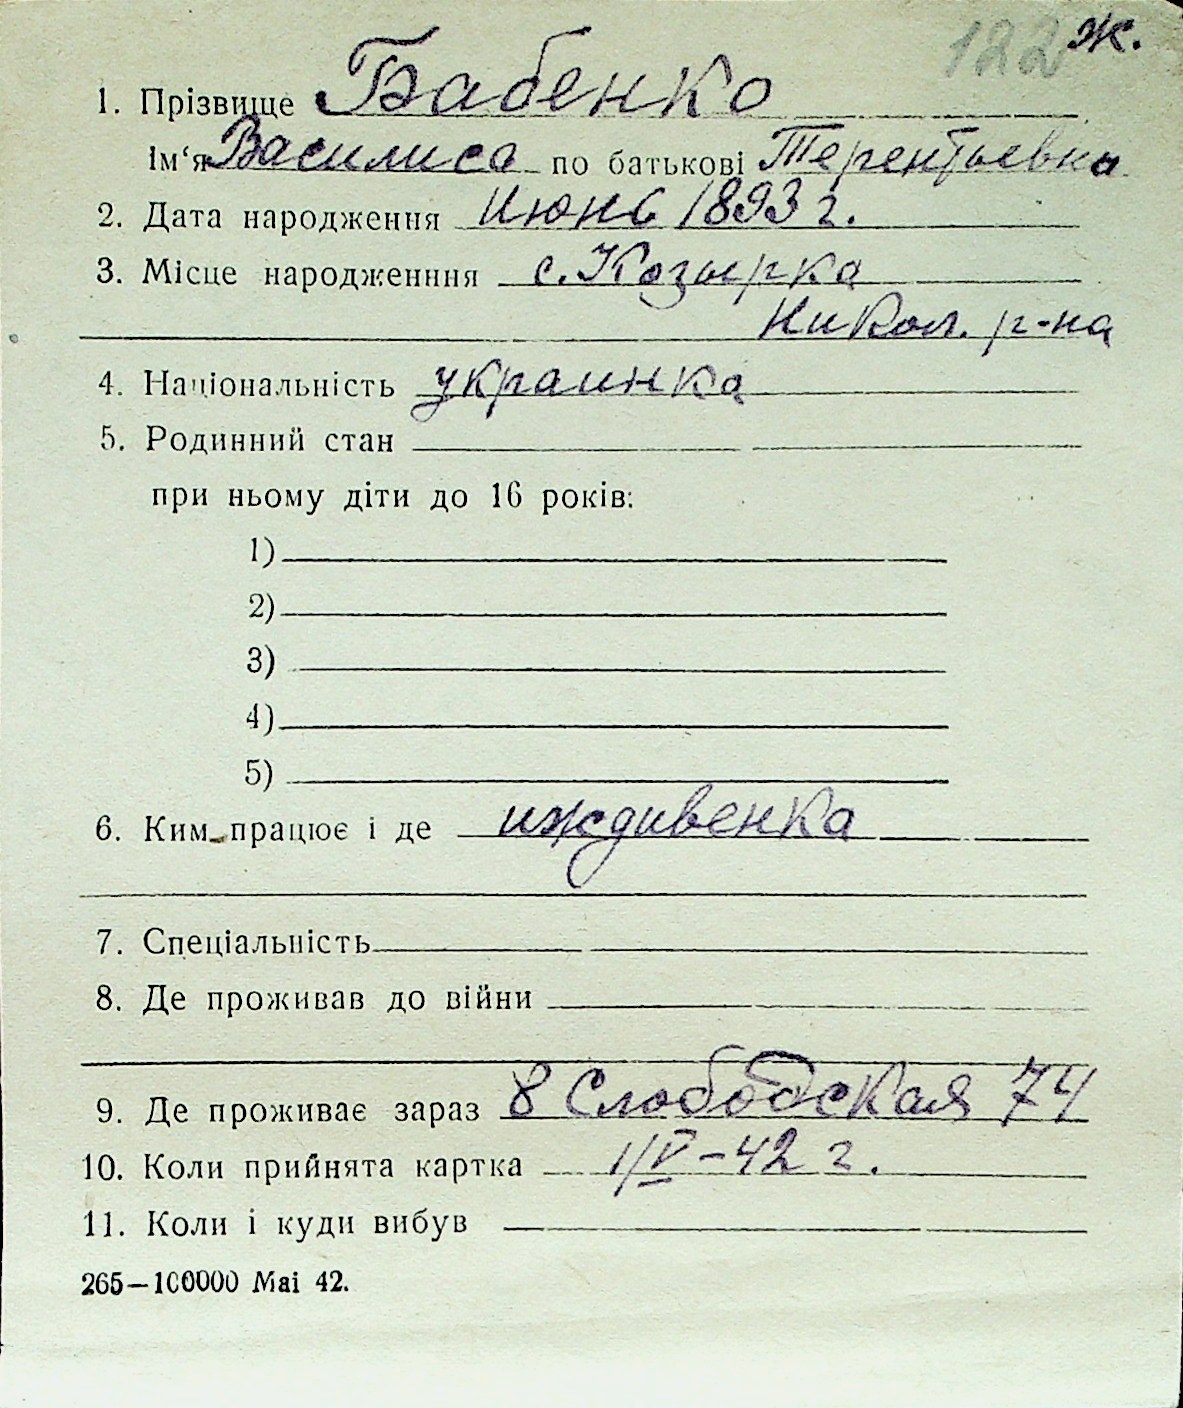 122 ж.
1. Прізвище Бабенко
Ім‘я Василиса по батькові Терентьевна
2. Дата народження Июнь 1893 г.
3. Місце народженння с. Козырка
Никол. р-на
4. Національність украинка
5. Родинний стан
при ньому діти до 16 років:
1)
2)
3)
4)
5)
6. Ким працює і де иждивенка
7. Спеціальність
8. Де проживав до війни
9. Де проживає зараз 8 Слободская 74
10. Коли прийнята картка 1/V-42 г.
11. Коли і куди вибув
265—100000 Mai 42.